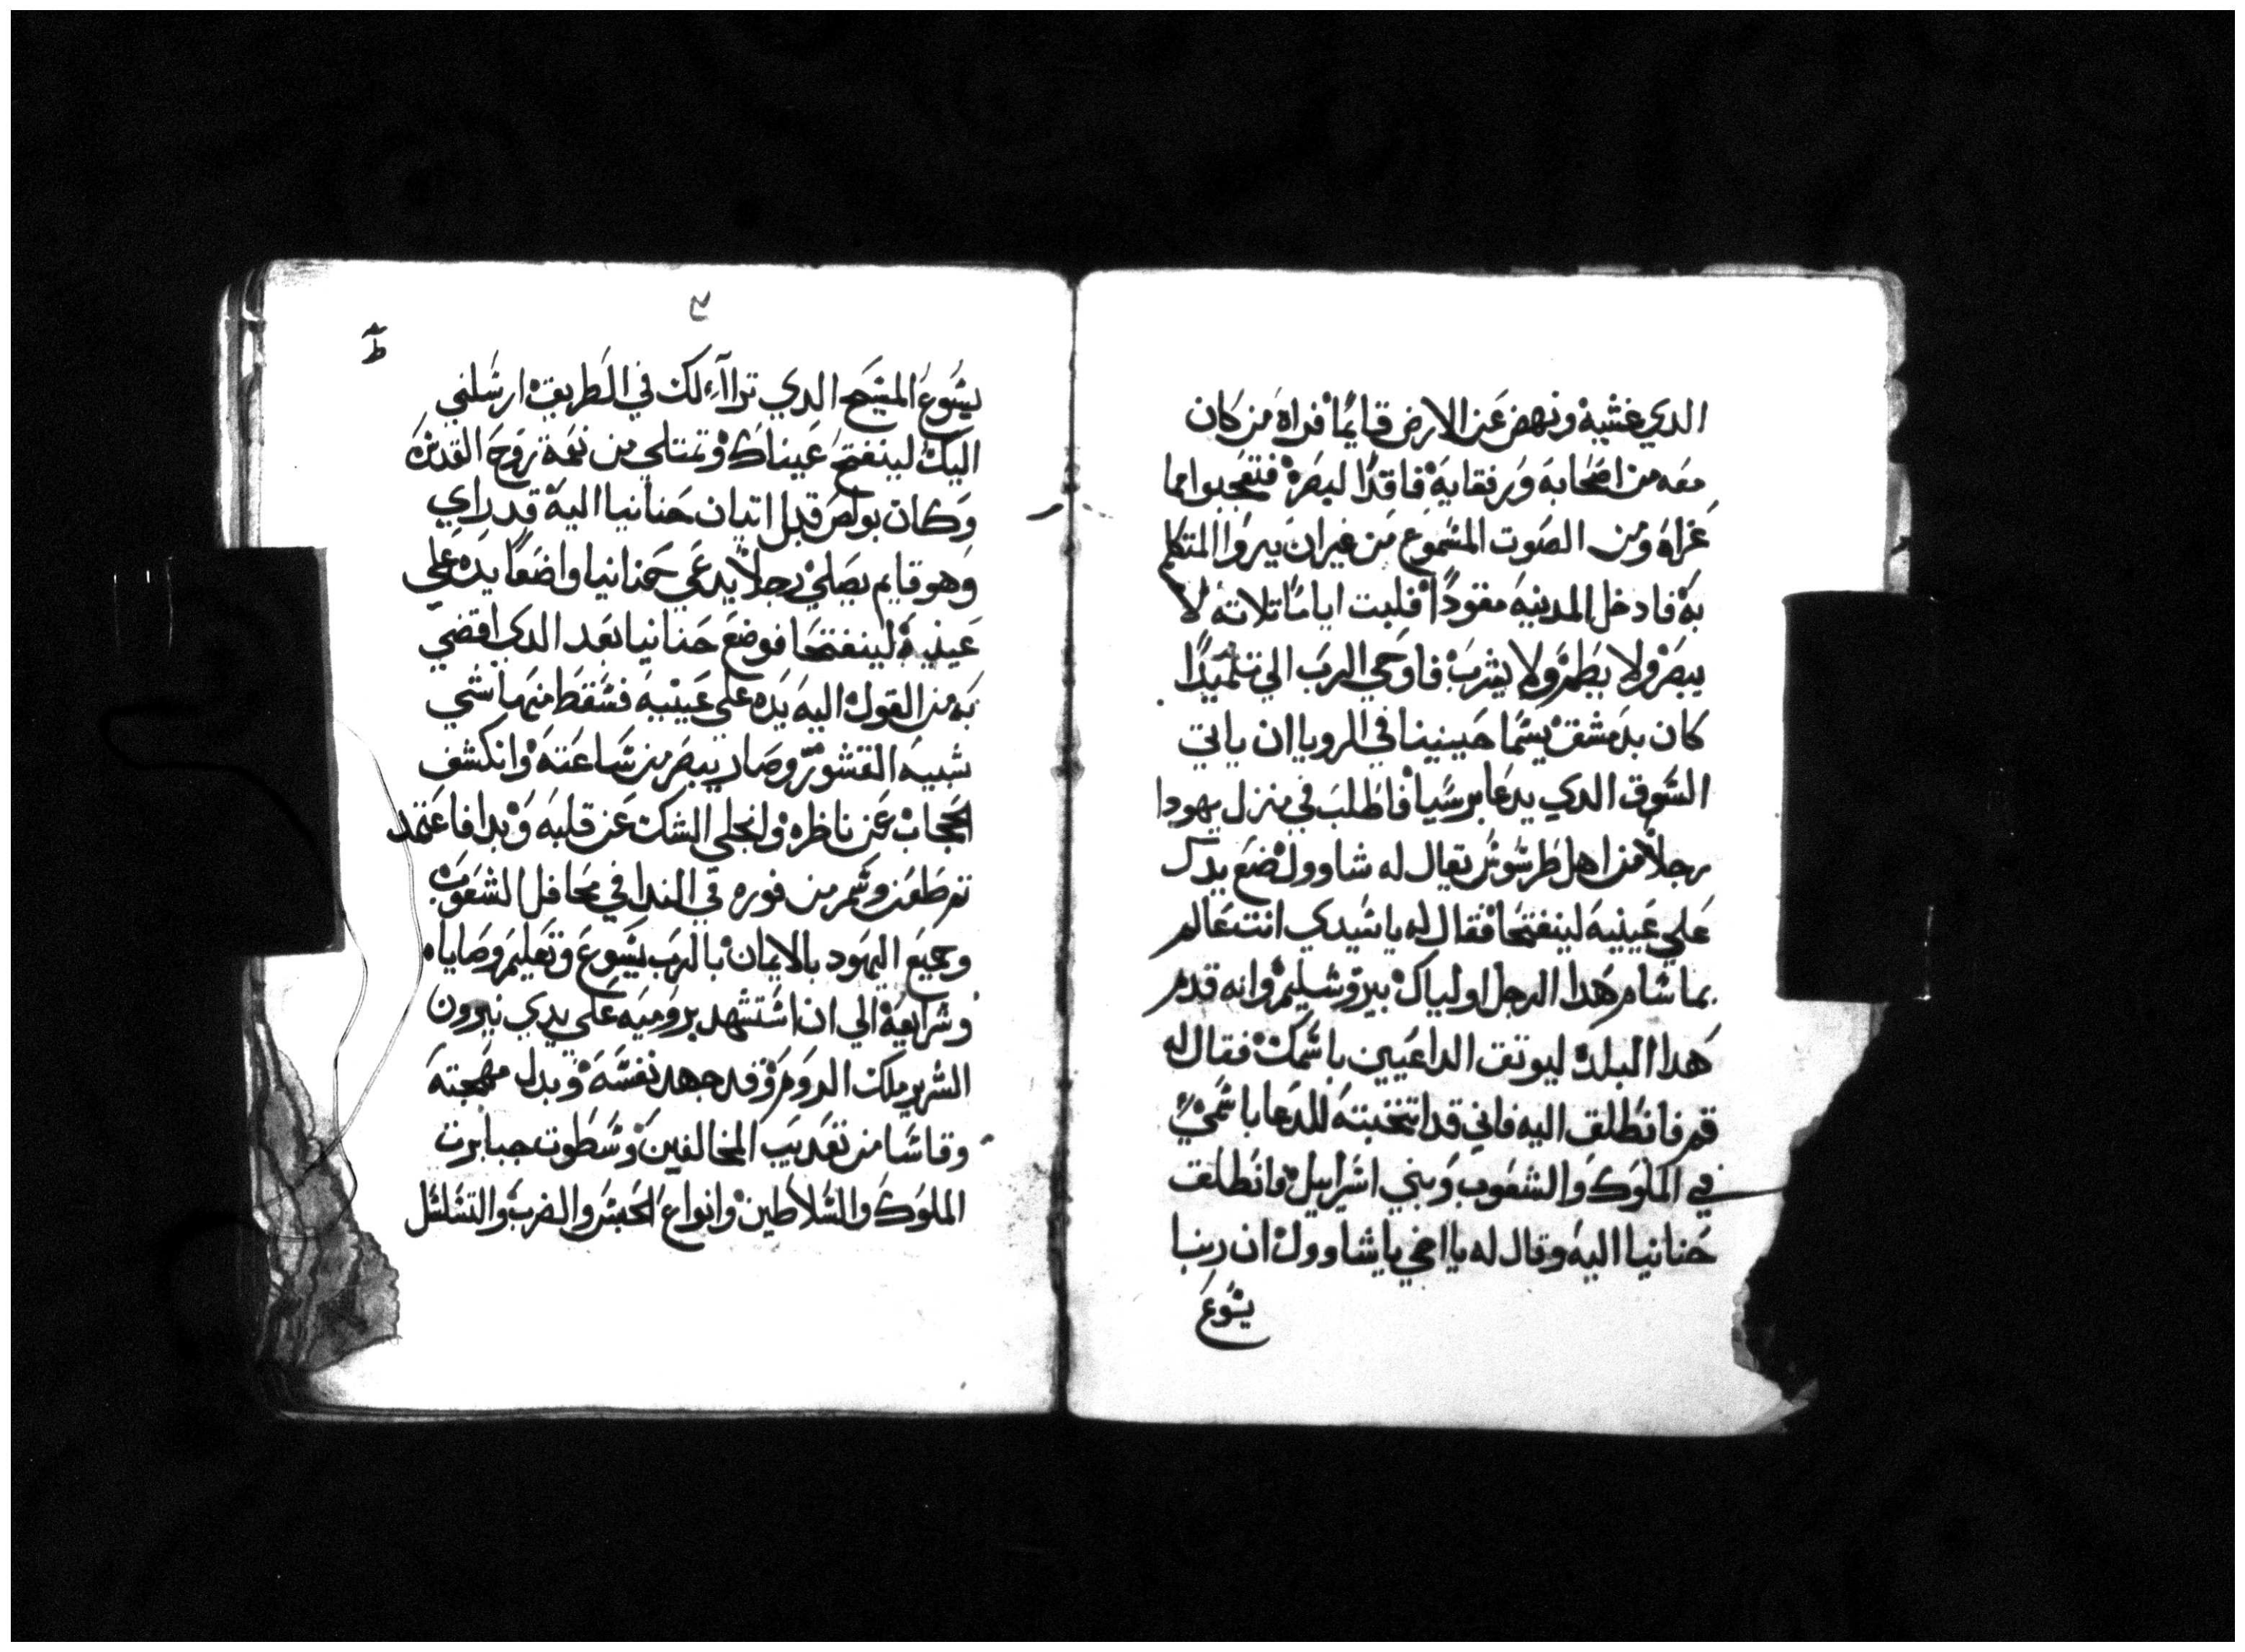 الدي غشيه ونهض عن الارض قايمًا فراه من كان
معه من اصحابه ورفقايه فاقدًا لبصره فتعجبوا مما
عراه ومن الصوت المسموع من غير ان يروا المتكلم
به فادخل المدينه مقودًا فلبت ايامًا تلاته لا
يبصر ولا يطعم ولا يشرب فاوحي الرب الي تلميدًا
كان بدمشق يسما حنينيا في الرويا ان ياتي
السوق الدي يدعا برسيا فاطلب في منزل يهودا
رجلاً من اهل طرسوس يقال له شاوول ضع يدك
علي عينيه لينفتحا فقال له يا سيدي انت عالم
بما شام هدا الرجل اولياك بيروشليم وانه قدم
هدا البلد ليوتق الداعيين باسمك فقال له
قم فانطلق اليه فاني قد انتخبته للدعا باسمي
في الملوك والشعوب وبني اسراييل فانطلق
حنانيا اليه وقال له يا اخي يا شاوول ان ربنا
يسوع
ط
يسوع المسيح الدي تراآء لك في الطريق ارسلني
اليك لينفتح عيناك وتمتلي من نعمة روح القدس
وكان بولص قبل اتيان حنانيا اليه قد راي
وهو قايم يصلي رجلاً يدعي حنانيا واضعًا يده علي
عينيه لينفتحا فوضع حنانيا بعد الدي افضي
به من القول اليه يده علي عينيه فسقط منهما شي
شبيه القشور وصار يبصر من ساعته وانكشف
الحجاب عن ناظره وانجلي الشك عن قلبه وبدا فاعتمد
وشمر من فوره في الندا في محافل الشعوب
وجميع اليهود بالايمان بالرب يسوع وتعليم وصاياه
وشرايعه الي ان استشهد بروميه علي يدي نيرون
الشرير ملك الروم وقد جهد نفسه وبدل مهجته
وقاسا من تعديب المخالفين وسطوت جبابرت
الملوك والسلاطين وانواع الحبس والضرب والتسلسل